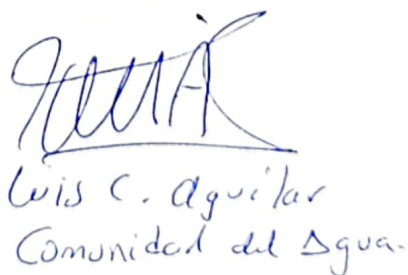 Luis C. Aguilar
Comunidad del Agua.